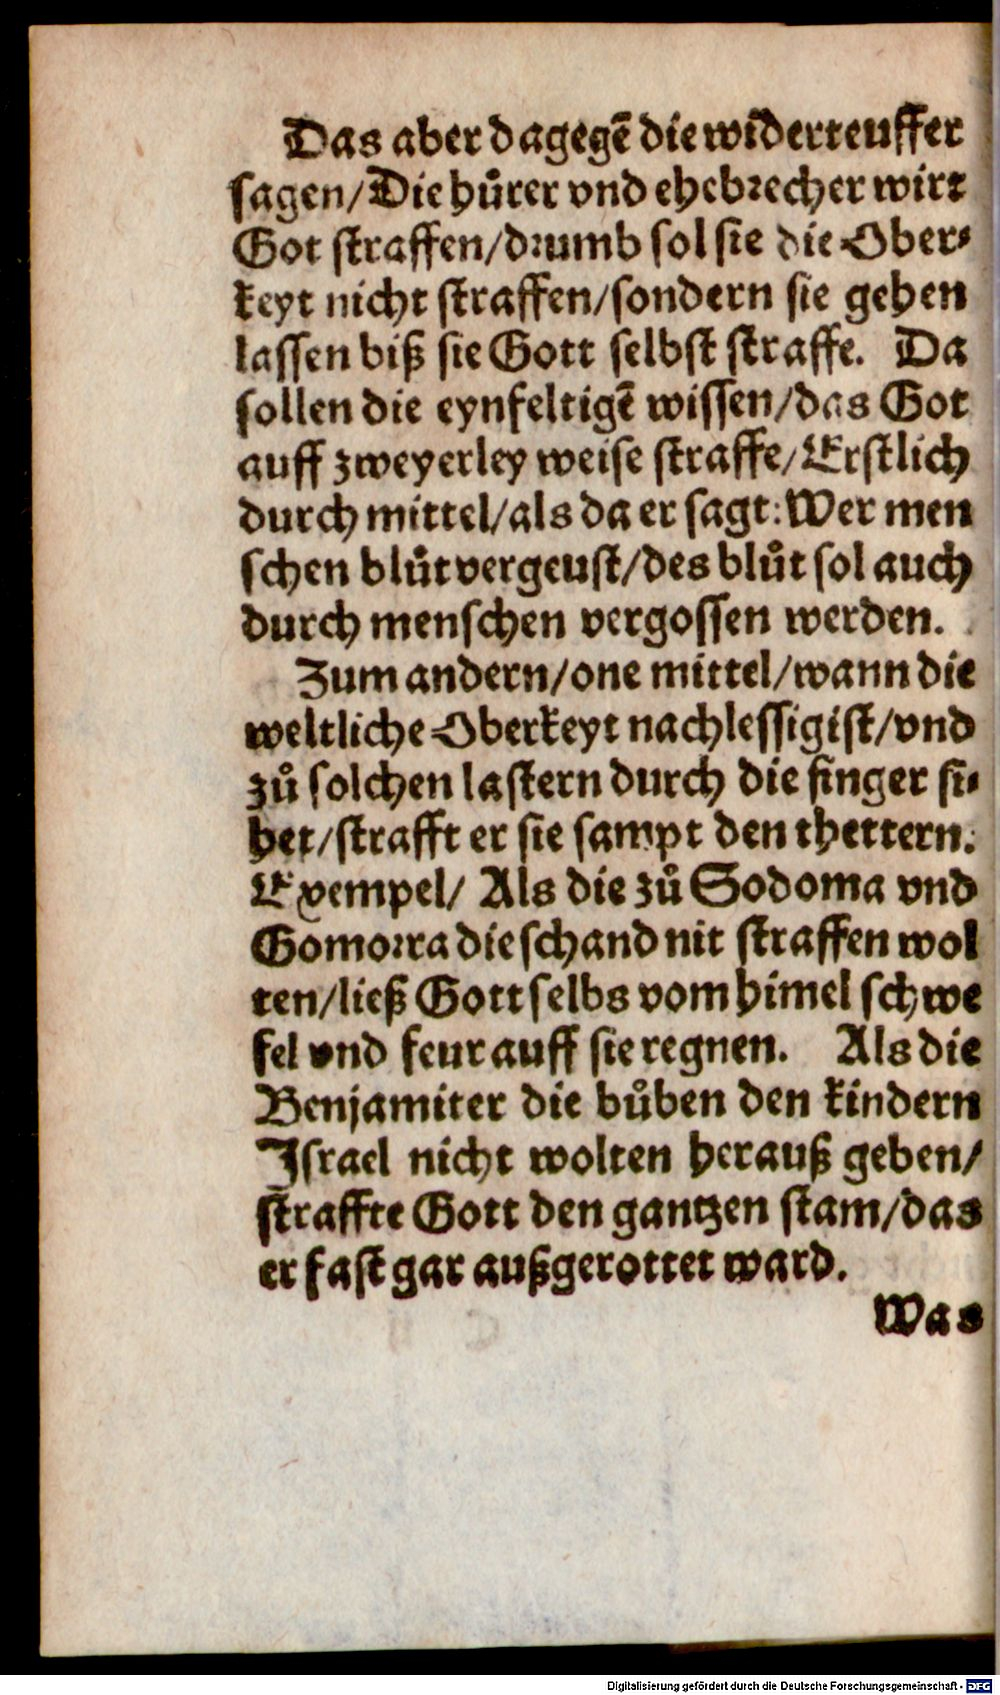 Das aber dagegē die widerteuffer
sagen/Die hůrer vnd ehebrecher wirt
Got straffen/drumb sol sie die Ober-
keyt nicht straffen/sondern sie gehen
lassen biß sie Gott selbst straffe. Da
sollen die eynfeltigē wissen/das Got
auff zweyerley weise straffe/Erstlich
durch mittel/als da er sagt: Wer men
schen blůt vergeust/des blůt sol auch
durch menschen vergossen werden.
Zum andern/one mittel/wann die
weltliche Oberkeyt nachlessig ist/vnd
zů solchen lastern durch die finger si-
het/strafft er sie sampt den thettern.
Exempel/ Als die zů Sodoma vnd
Gomorra die schand nit straffen wol
ten/ließ Gott selbs vom himel schwe
fel vnd feur auff sie regnen. Als die
Benjamiter die bůben den kindern
Israel nicht wolten herauß geben/
straffte Gott den gantzen stam/das
er fast gar außgerottet ward.
Was
Digitalisierung gefördert durch die Deutsche Forschungsgemeinschaft - DFG